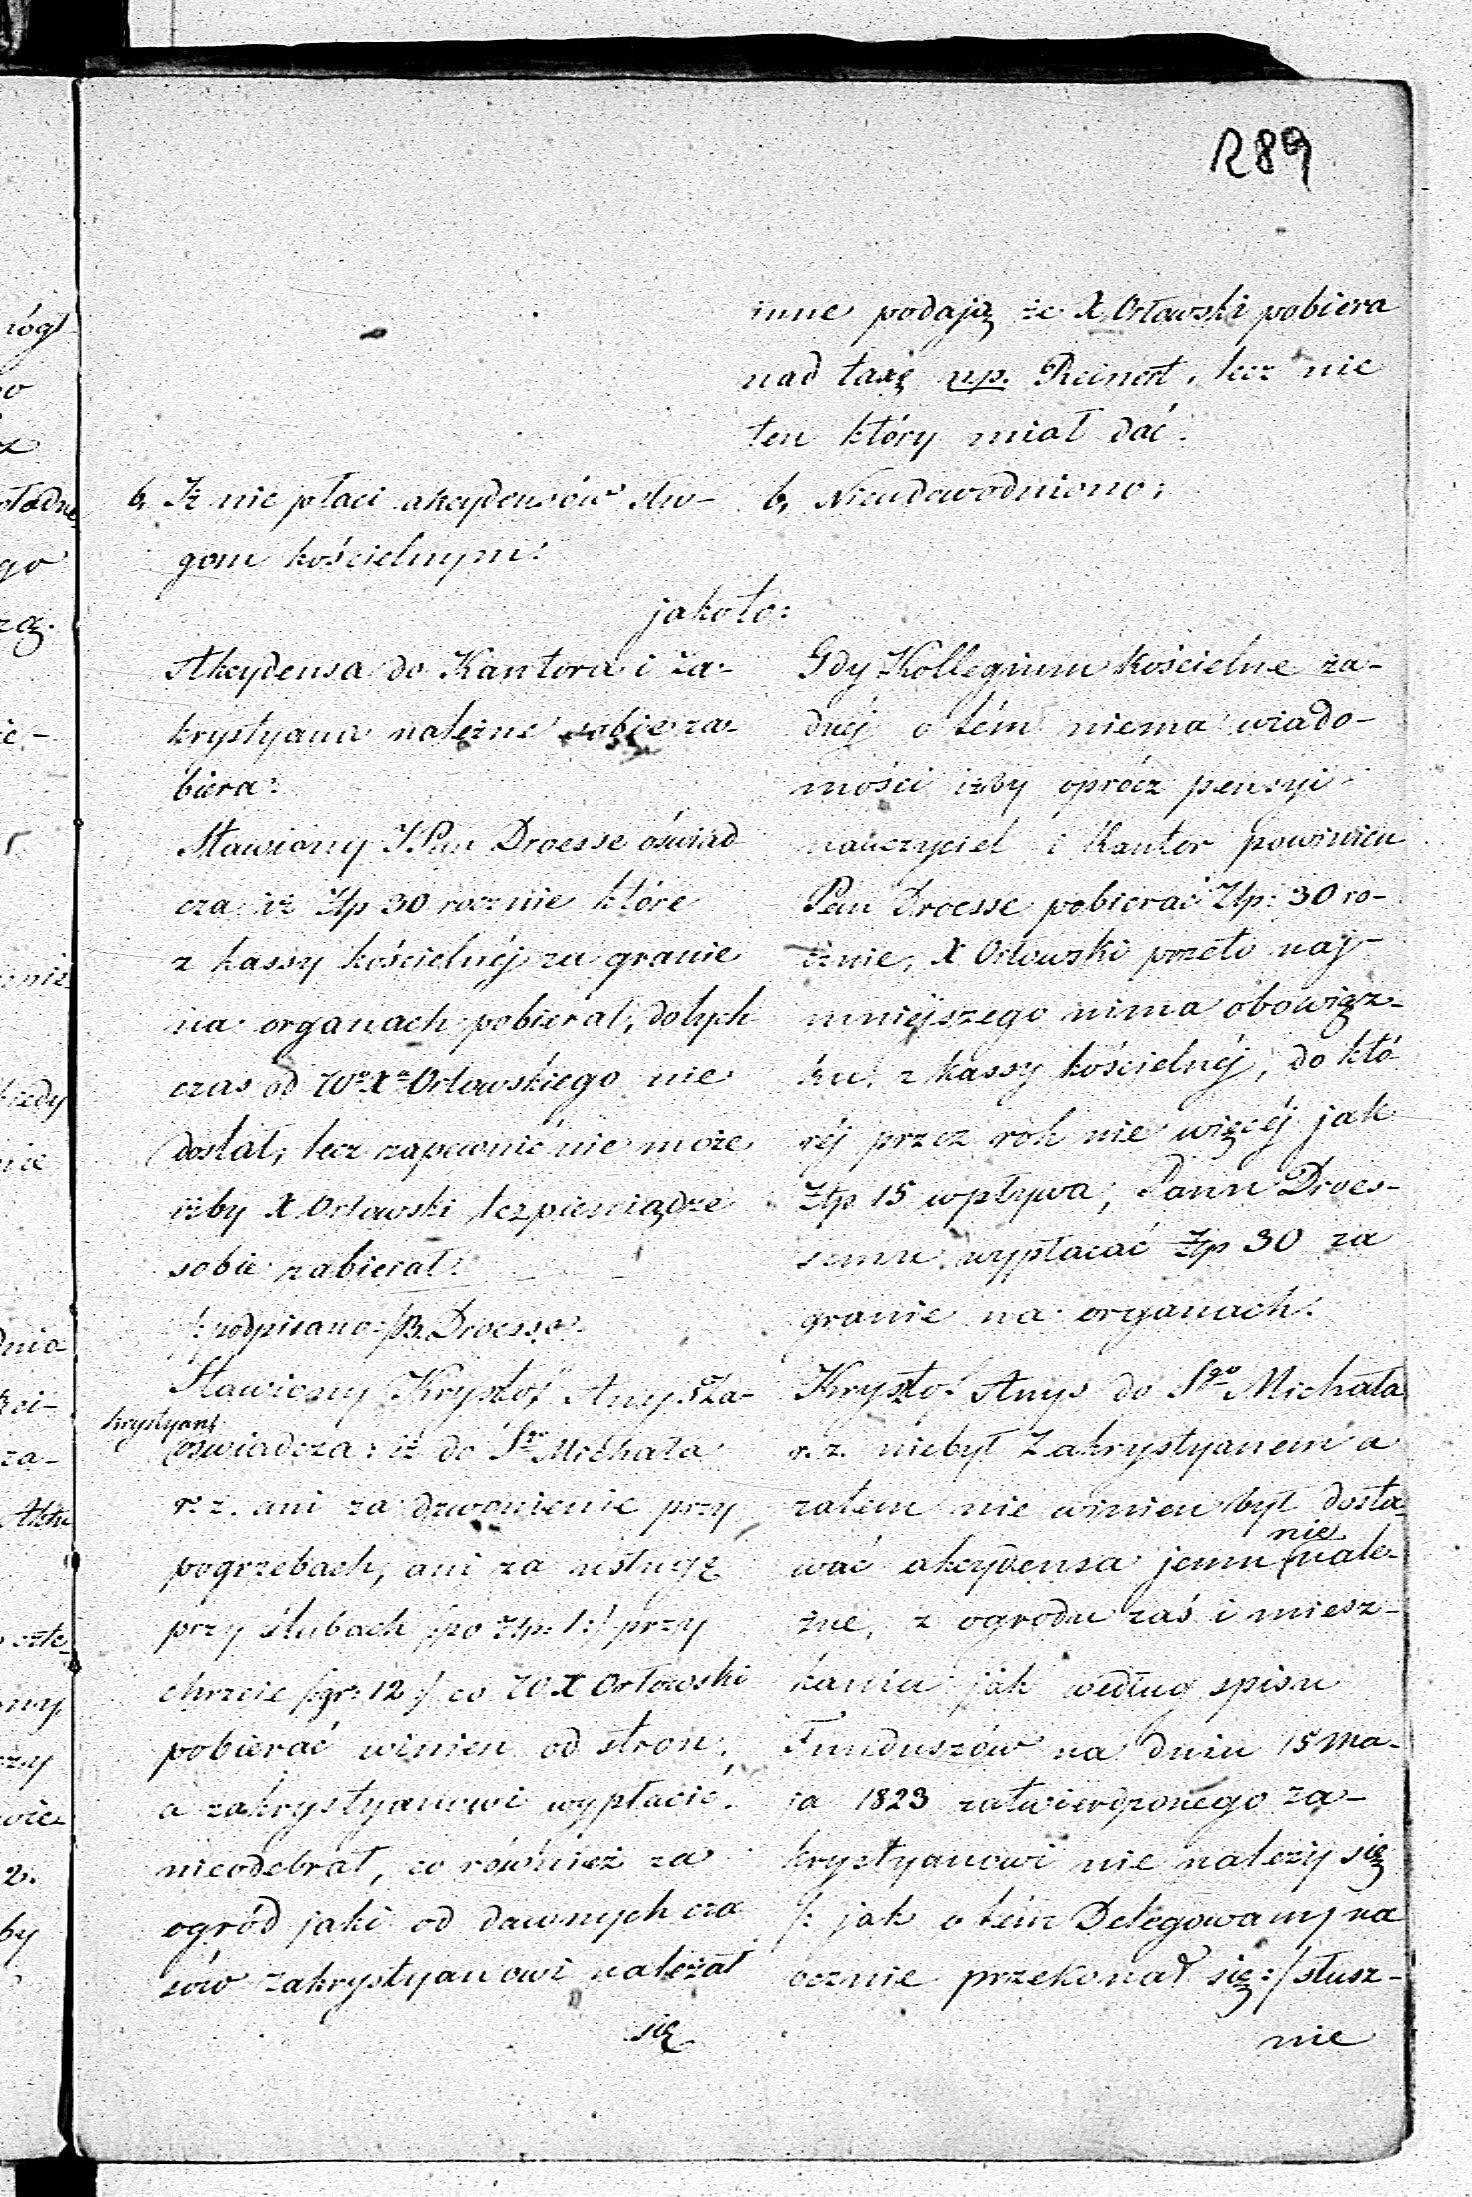 289
inne podają że X. Orłowski pobiera
nad taxę np. Reinert, lecz nie
ten który miał dać.
b, Iż nie płaci akcydensów słu-
gom kościelnym:
b, Nieudowodniono;
jakoto:
Akcydensa do Kantora i Za-
krystyana należne sobie za-
biera:
Stawiony JPan Droesse oświad
cza iż Złp 30 rocznie które
z kassy kościelnéj za granie
na organach pobierał, dotych
czas od Wo Xa Orłowskiego nie
dostał, lecz zapewnić nie może
iżby X Orłowski te pieniądze
sobie zabierał.
/: podpisano :/ B. Droesse.
Stawiony Krysztof Anys Za-
krystyan
oświadcza: iż do Sgo Michała
r. z. ani za dzwonienie przy
pogrzebach, ani za usługę
przy ślubach /:po Złp. 1:/ przy
chrzcie /:gr: 12:/ co W X Orłowski
pobierać winien od stron,
a zakrystyanowi wypłacić,
nieodebrał, co również za
ogród jaki od dawnych cza
sów zakrystyanowi należał
się
Gdy Kollegium Kościelne ża-
dnéj o tém niema wiado-
mości iżby oprócz pensyi
nauczyciel i Kantor powinien
Pan Droesse pobierać Złp: 30 ro-
cznie, X Orłowski przeto naj-
mniéjszego nima obowiąz-
ku, z kassy kościelnéj, do któ
réj przez rok nie więcéj jak
Złp 15 wpływa, Panu Droes-
semu wypłacać Złp 30 za
granie na organach.
Krysztof Anys do Sgo Michała
r. z. niebył Zakrystyanem a
zatem nie winien był dosta-
wać akcydensa jemu nie nale-
żne, z ogrodu zaś i miesz-
kania jak według spisu
Funduszów na dniu 15 Ma-
ia 1823 zatwierdzonego za-
krystyanowi nie należy się
/: jak o tém Delegowany na
ocznie przekonał się :/ słusz-
nie